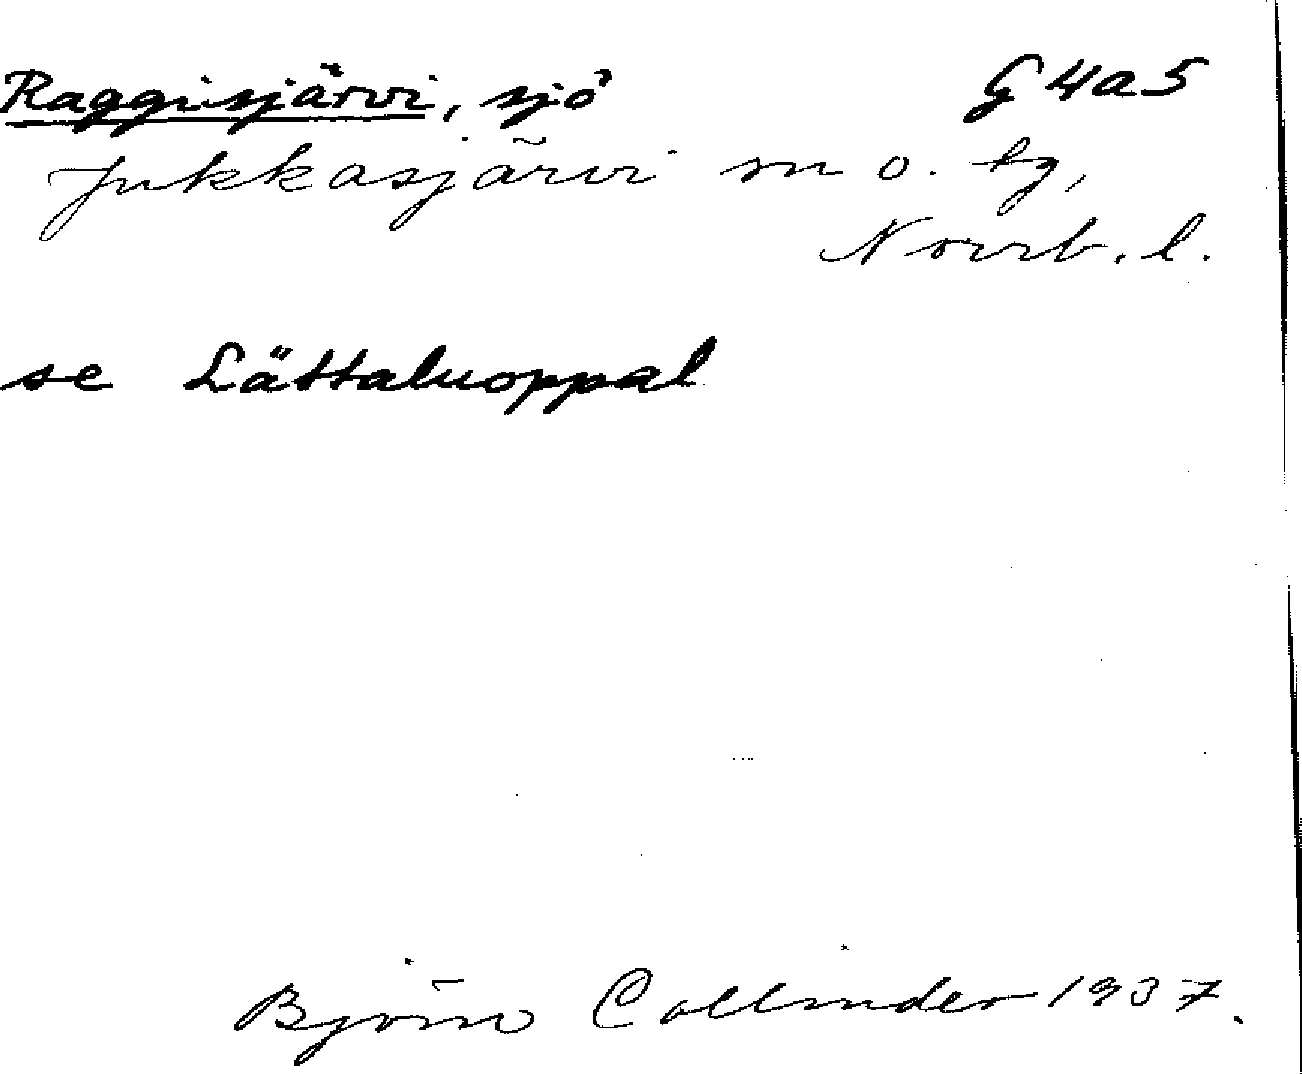 Raggisjärvi, sjö G 4a5
Jukkasjärvi sn o. tg,
Norrb. l.
se Lättaluoppal
Björn Collinder 1937.